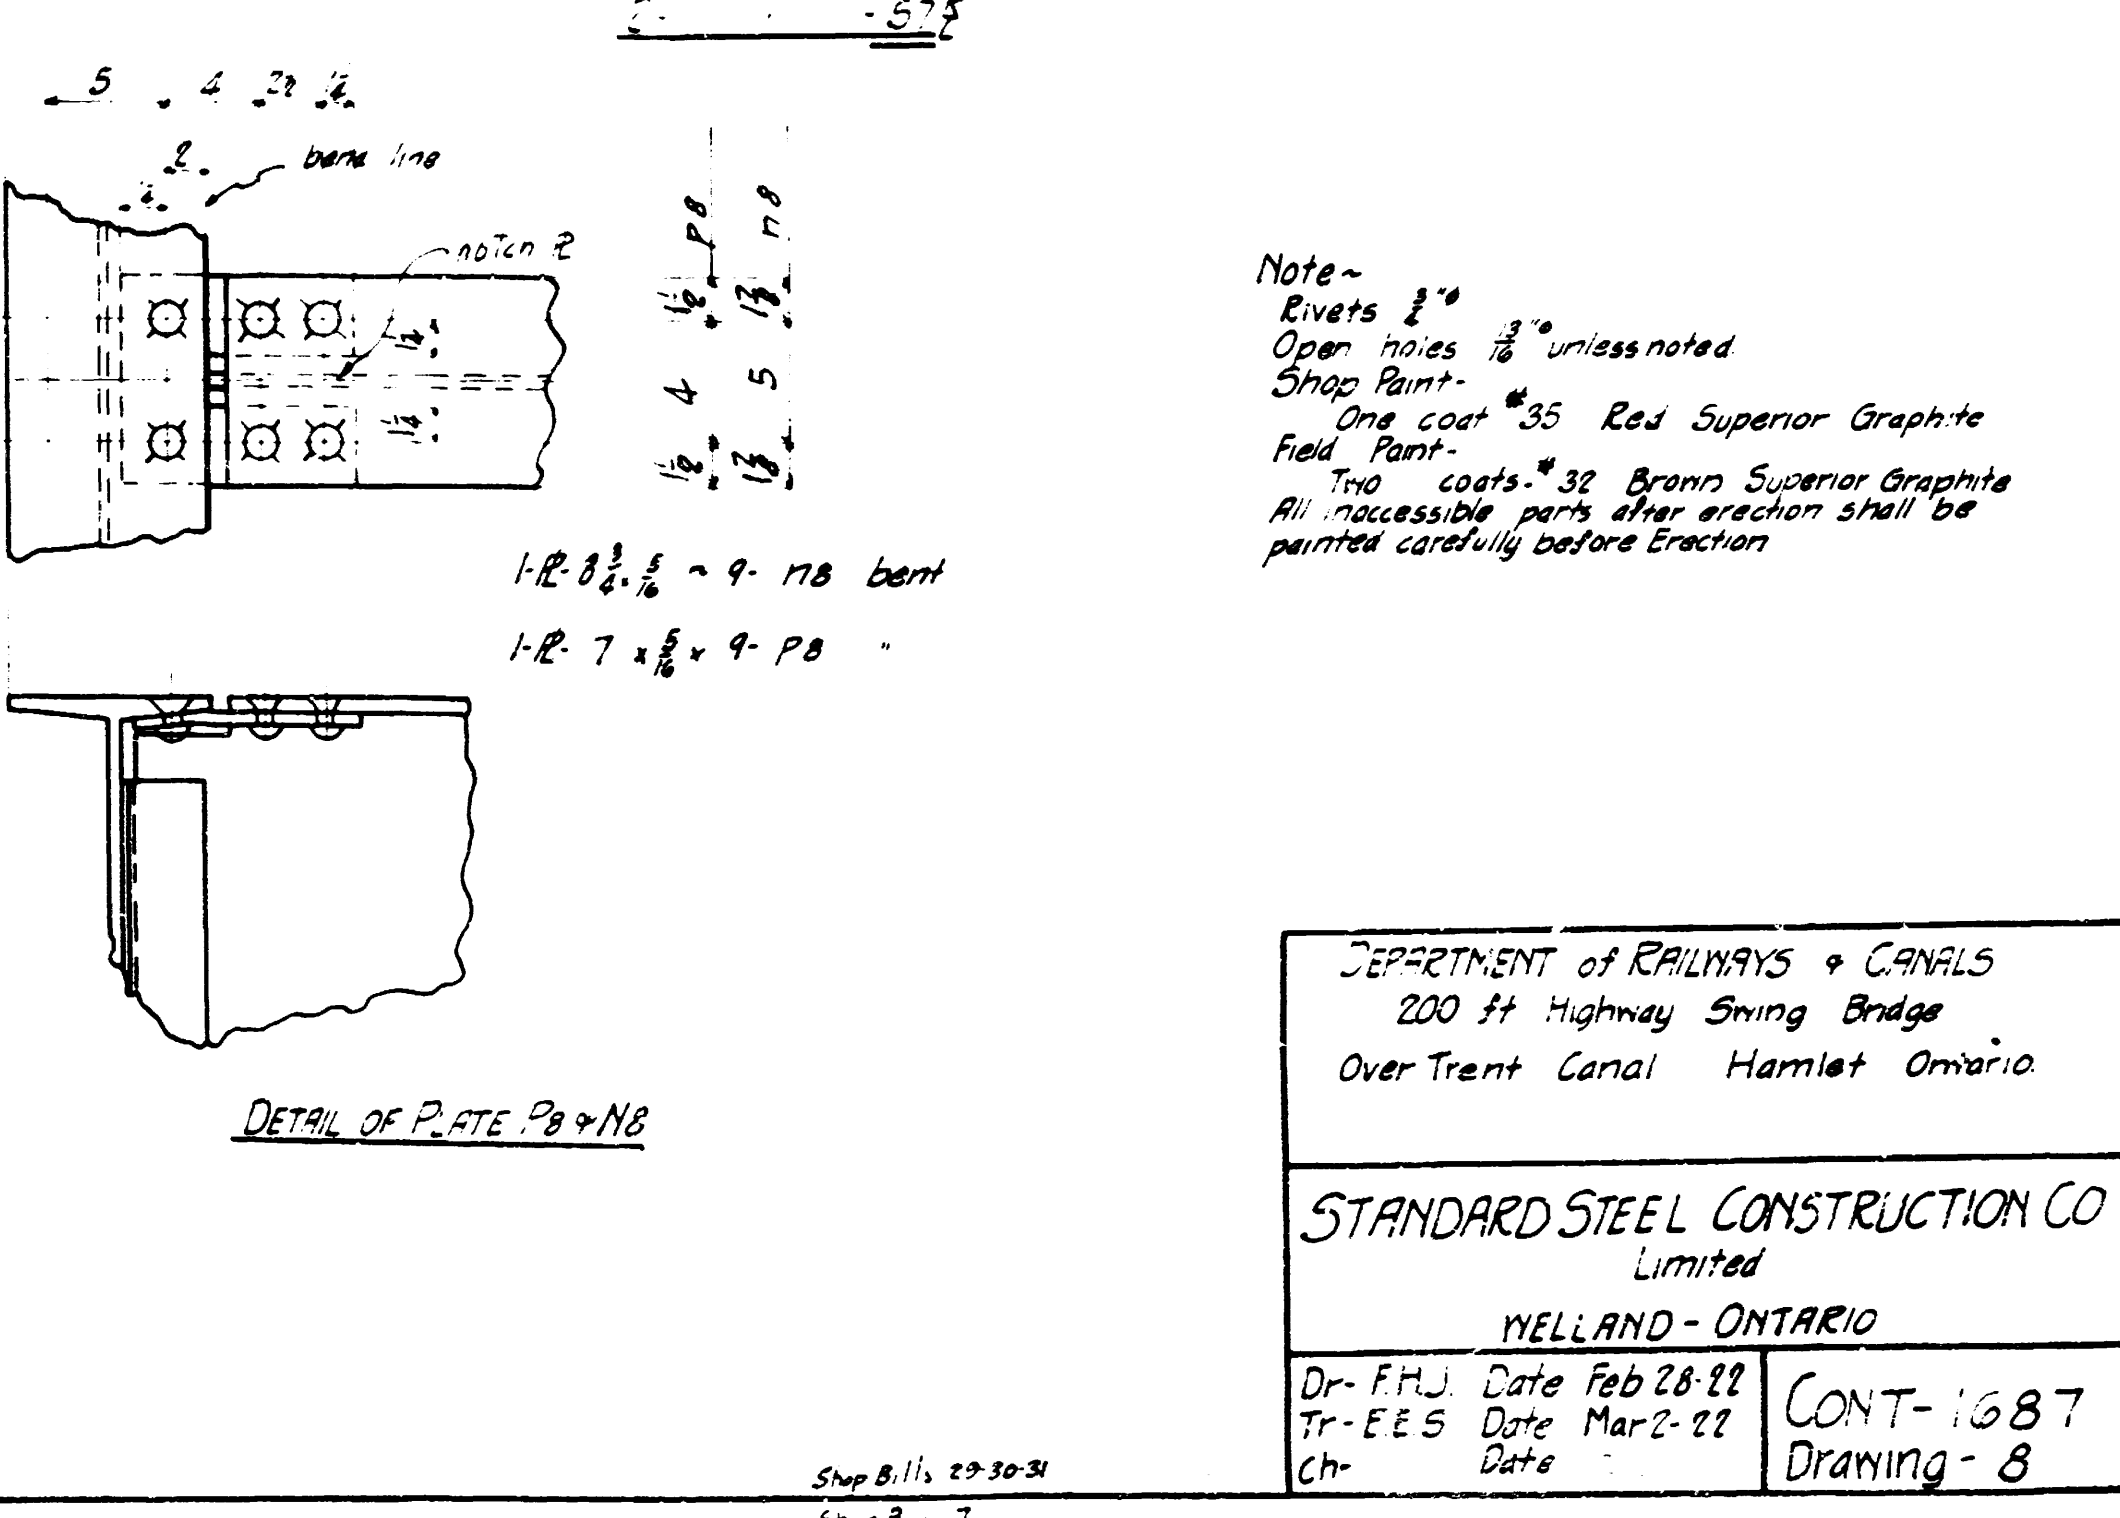 5 4 2½ 1¼
2
bend line
notch PL
1¼
1¼
1½ 4 1½ P8
1⅞ 5 1⅞ n8
1-PL- 8 3/4 × 5/16 ~ 9- n8 bent
1-PL- 7 × 5/16 × 9- P8 "
DETAIL OF PLATE P8 & N8
Note~
Rivets 3/4"ø
Open holes 13/16"ø unless noted.
Shop Paint-
One coat #35 Red Superior Graphite
Field Paint-
Two coats-#32 Brown Superior Graphite
All inaccessible parts after erection shall be
painted carefully before Erection
DEPARTMENT of RAILWAYS & CANALS
200 ft Highway Swing Bridge
Over Trent Canal Hamlet Ontario.
STANDARD STEEL CONSTRUCTION CO
Limited
WELLAND - ONTARIO
Dr- F.H.J. Date Feb 28-22
Tr- E.E.S Date Mar 2-22
Ch- Date
CONT- 1687
Drawing - 8
Shop Bills 29-30-31